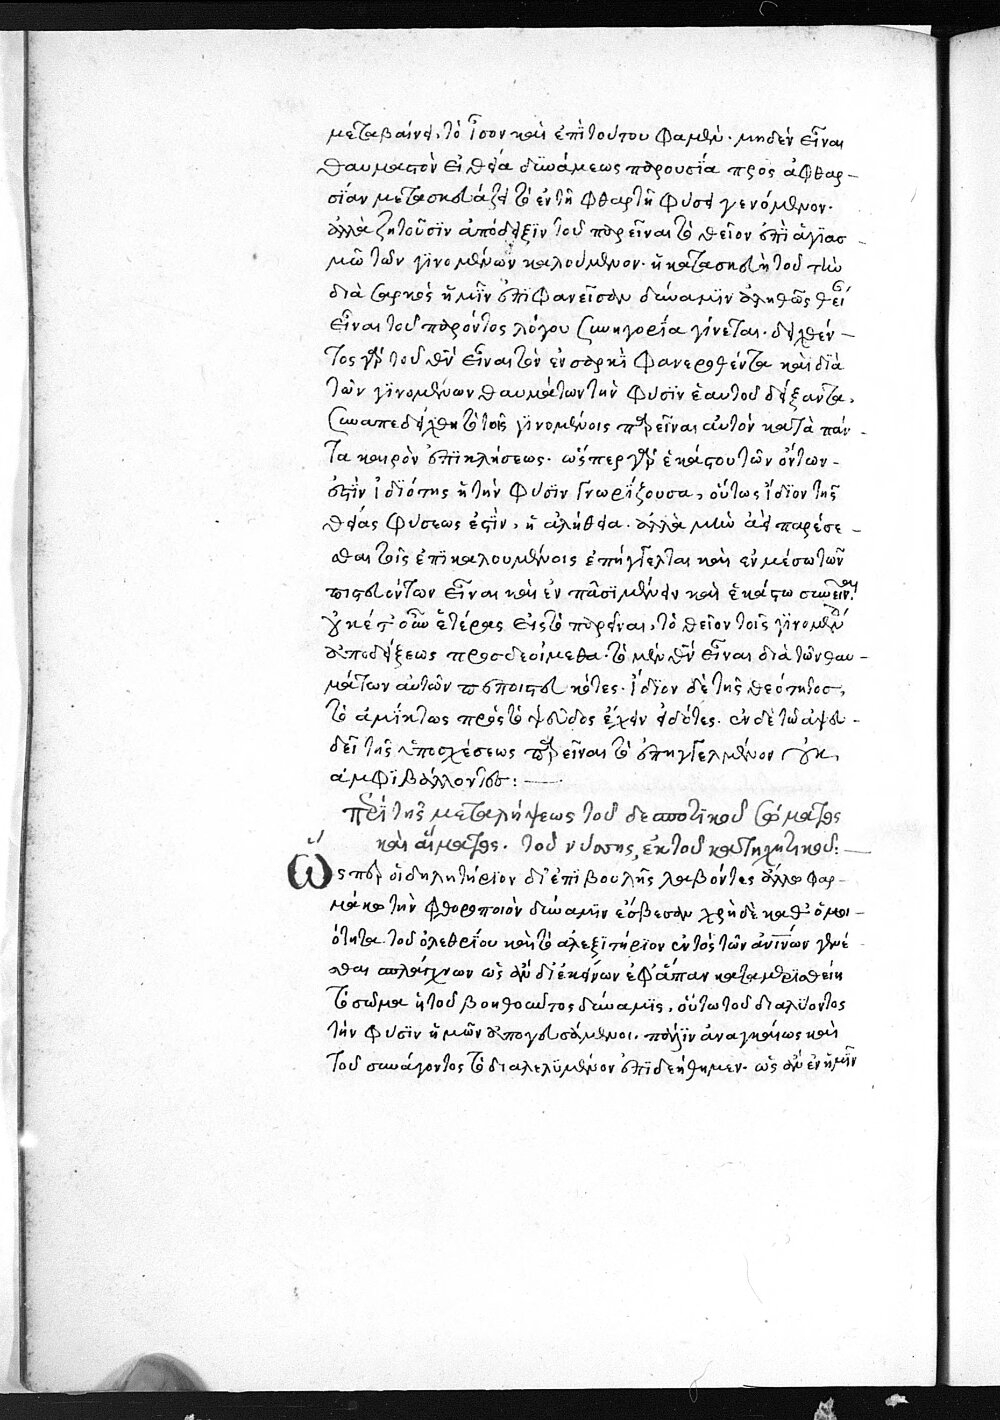 μεταβαίνει, τὸ ἴσον καὶ ἐπὶ τούτου φαμὲν· μηδὲν εἶναι
θαυμαστὸν εἰ θεία δυνάμεως παρουσία πρὸς ἀφθαρ-
σίαν μετασκευάζει τὸ ἐν τῆ φθαρτῆ φύσει γενόμενον.
ἀλλὰ ζητοῦσϊν ἀπόδειξϊν τοῦ παρεῖναι τὸ θεῖον ἐπὶ ἁγϊασ-
μῶ τῶν γϊνομένων καλούμενον. ἡ κατασκευὴ τοῦ τὴν
διὰ σαρκὸς ἡμῖν ἐπϊφανεῖσαν δύναμϊν ἀληθῶς θεί
εἶναι τοῦ παρόντος λόγου συνηγορΐα γίνεται. δειχθέν-
τος γὰρ τοῦ θν εἶναι τὸν ἐν σαρκὶ φανερωθέντα καὶ διὰ
τῶν γϊνομένων θαυμάτων τὴν φύσϊν ἑαυτοῦ δείξαντα,
συναπεδείχθη τὸ τοῖς γϊνομένοις παρεῖναι αὐτὸν κατὰ πάν-
τα καιρὸν ἐπϊκλήσεως. ὥσπερ γὰρ ἑκάστου τῶν ὄντων
ἐστὶν ἰδϊότης ἡ τὴν φύσϊν γνωρΐζουσα, οὕτως ἴδϊον τῆς
θείας φύσεως ἐστὶν, ἡ ἀλήθεια. ἀλλὰ μὴν ἀεὶ παρέσε-
θαι τοῖς ἐπϊκαλουμένοις ἐπήγγελται καὶ ἐν μέσω τῶν
πιστευόντων εἶναι καὶ ἐν πᾶσϊ μένειν καὶ ἑκάστω συνεῖναι.
οὐκέτ οὖν ἑτέρας εἰς τὸ παρεῖναι, τὸ θεῖον τοῖς γϊνομέν
ἀποδείξεως προσδεόμεθα. τὸ μὲν θν εἶναι διὰ τῶν θαυ-
μάτων αὐτῶν πεπιστευκότες. ἴδϊον δὲ τῆς θεότητος,
τὸ ἀμίκτως πρὸς τὸ ψεῦδος ἔχειν εἰδότες. ἐν δὲ τῶ ἀψευ-
δεῖ τῆς ὑποσχέσεως παρεῖναι τὸ ἐπηγγελμένον οὐκ
ἀμφϊβάλλοντες: —
περὶ τῆς μεταλήψεως τοῦ δεσποτϊκοῦ σώματος
καὶ αἵματος. τοῦ νύσης, ἐκ τοῦ κατηχητικοῦ: —
Ὥσπερ οἱ δηλητήρϊον δι ἐπϊβουλῆς λαβόντες ἄλλω φαρ-
μάκω τὴν φθοροποιὸν δύναμϊν ἔσβεσαν χρὴ δὲ καθ ὁμοι-
ότητα τοῦ ὀλεθρΐου καὶ τὸ ἀλεξϊτήρϊον ἐντὸς τῶν ἀνίνων γενέ
σθαι σπλάγχνων ὡς ἂν δι ἐκείνων ἐφ ἅπαν καταμερϊσθείη
τὸ σῶμα ἡ τοῦ βοηθοῦντος δύναμϊς, οὕτω τοῦ διαλύοντος
τὴν φύσϊν ἡμῶν ἀπογευσάμενοι. πάλϊν ἀναγκαίως καὶ
τοῦ συνάγοντος τὸ διαλελϋμένον ἐπϊδεήθημεν. ὡς ἂν ἐν ἡμῖν